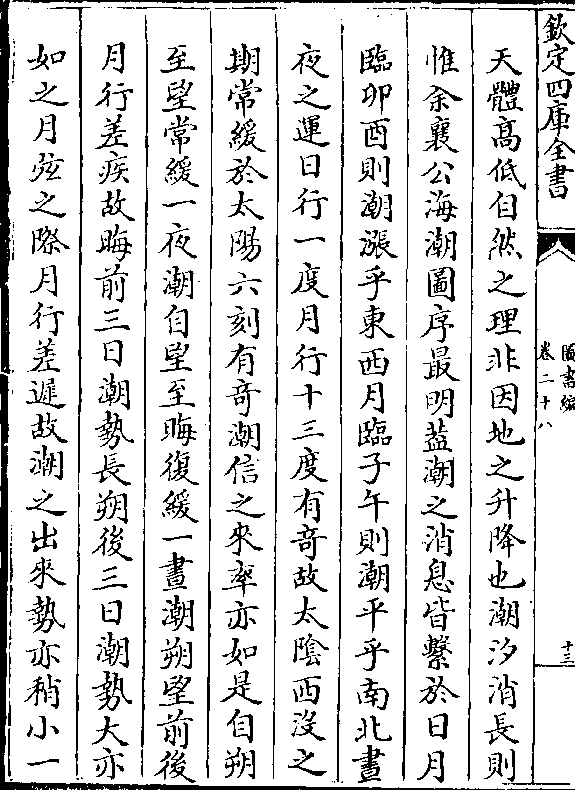 欽定四庫全書
圖書編
卷二十八
十三
天體高低自然之理非因地之升降也潮汐消長則
惟余襄公海潮圖序最明蓋潮之消息皆繫於日月
臨卯酉則潮漲乎東西月臨子午則潮平乎南北晝
夜之運日行一度月行十三度有竒故太陰西沒之
期常緩於太陽六刻有竒潮信之來率亦如是自朔
至望常緩一夜潮自望至晦復緩一晝潮朔望前後
月行差疾故晦前三日潮勢長朔後三日潮勢大亦
如之月弦之際月行差遲故潮之出來勢亦稍小一